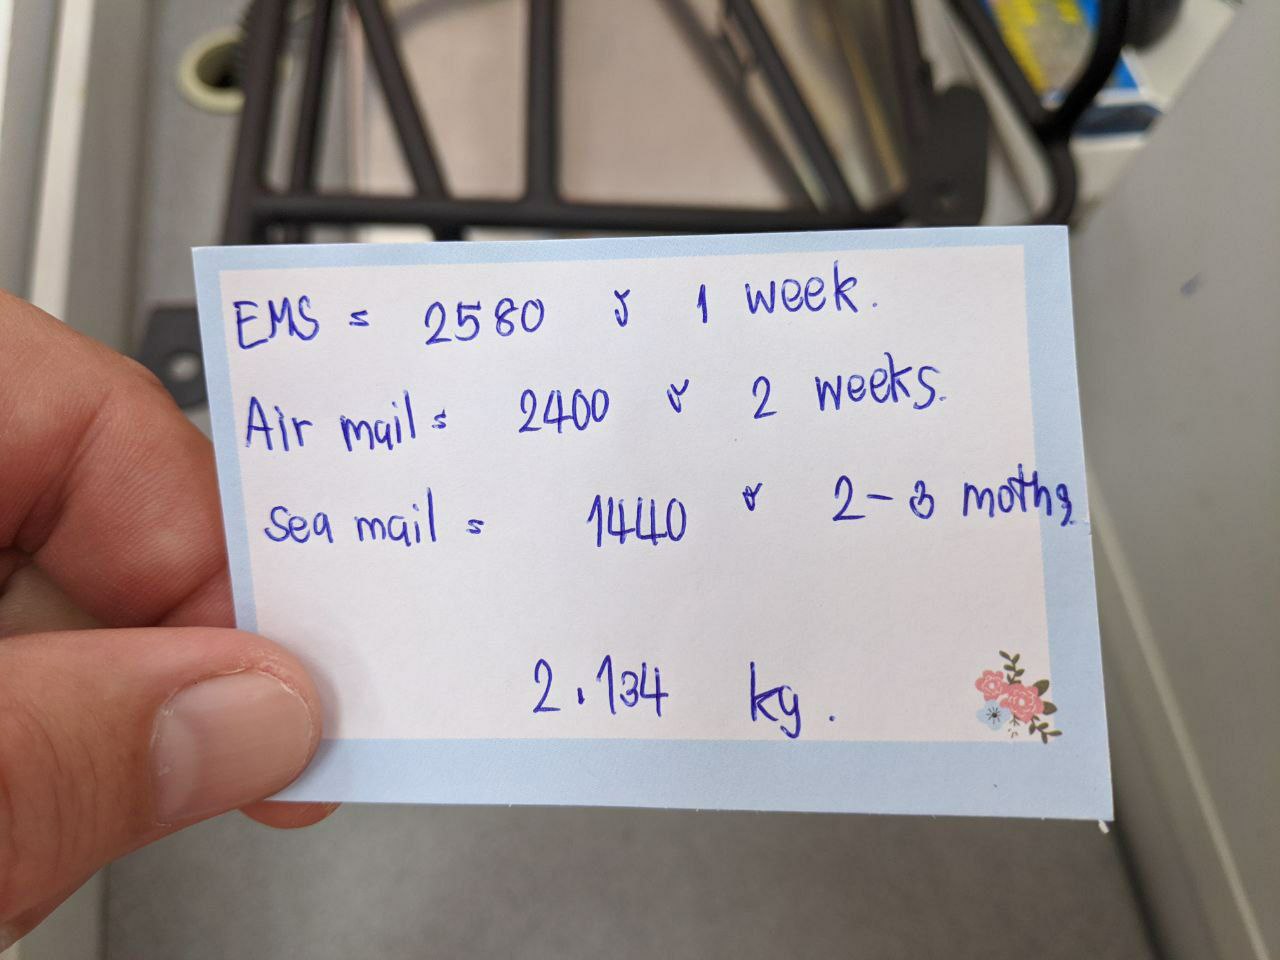 EMS = 2580 ✓ 1 week.
Air mail = 2400 ✓ 2 weeks.
Sea mail = 1440 ✓ 2-3 moths
2.134 kg.